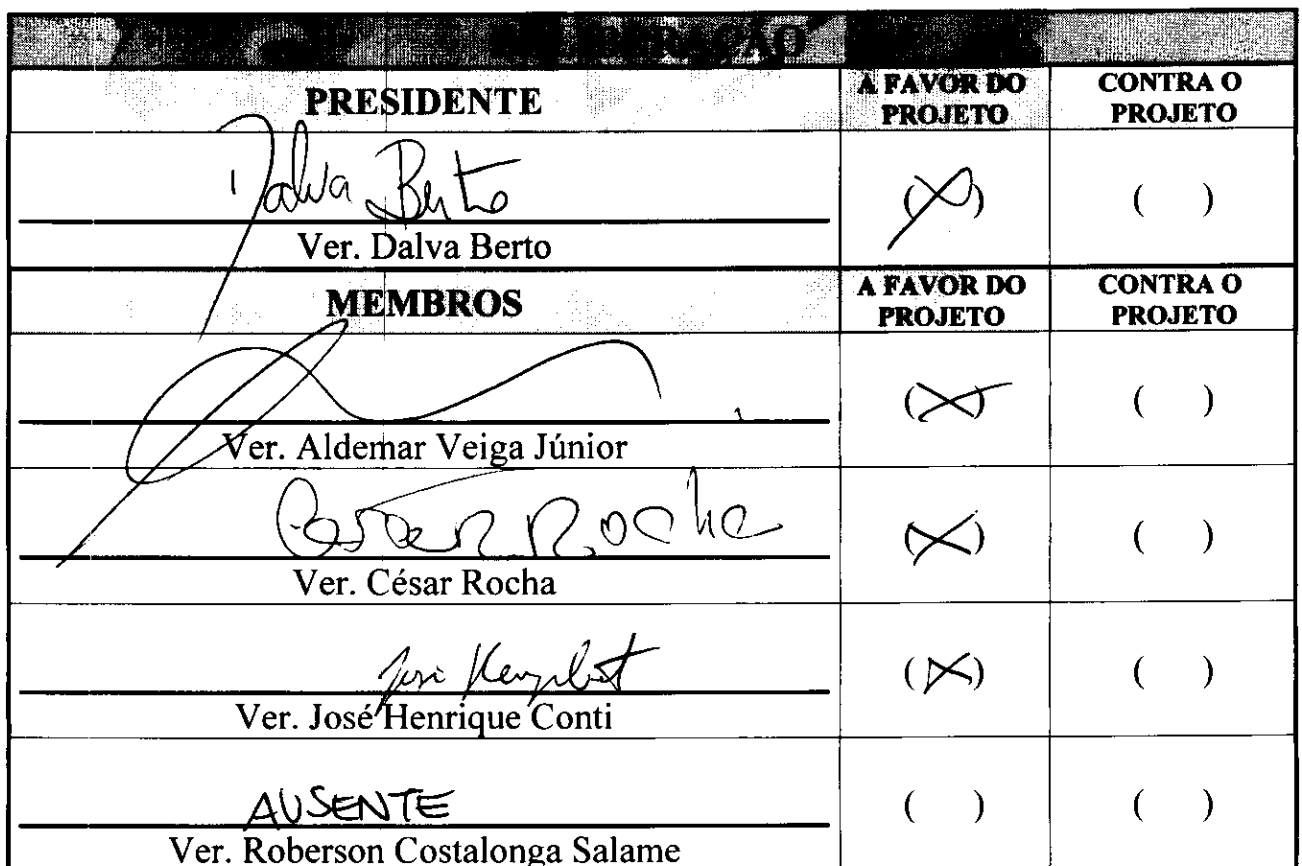 DELIBERAÇÃO
PRESIDENTE
A FAVOR DO PROJETO
CONTRA O PROJETO
Dalva Berto
(X)
( )
Ver. Dalva Berto
MEMBROS
A FAVOR DO PROJETO
CONTRA O PROJETO
(X)
( )
Ver. Aldemar Veiga Júnior
César Rocha
(X)
( )
Ver. César Rocha
José
(X)
( )
Ver. José Henrique Conti
AUSENTE
( )
( )
Ver. Roberson Costalonga Salame